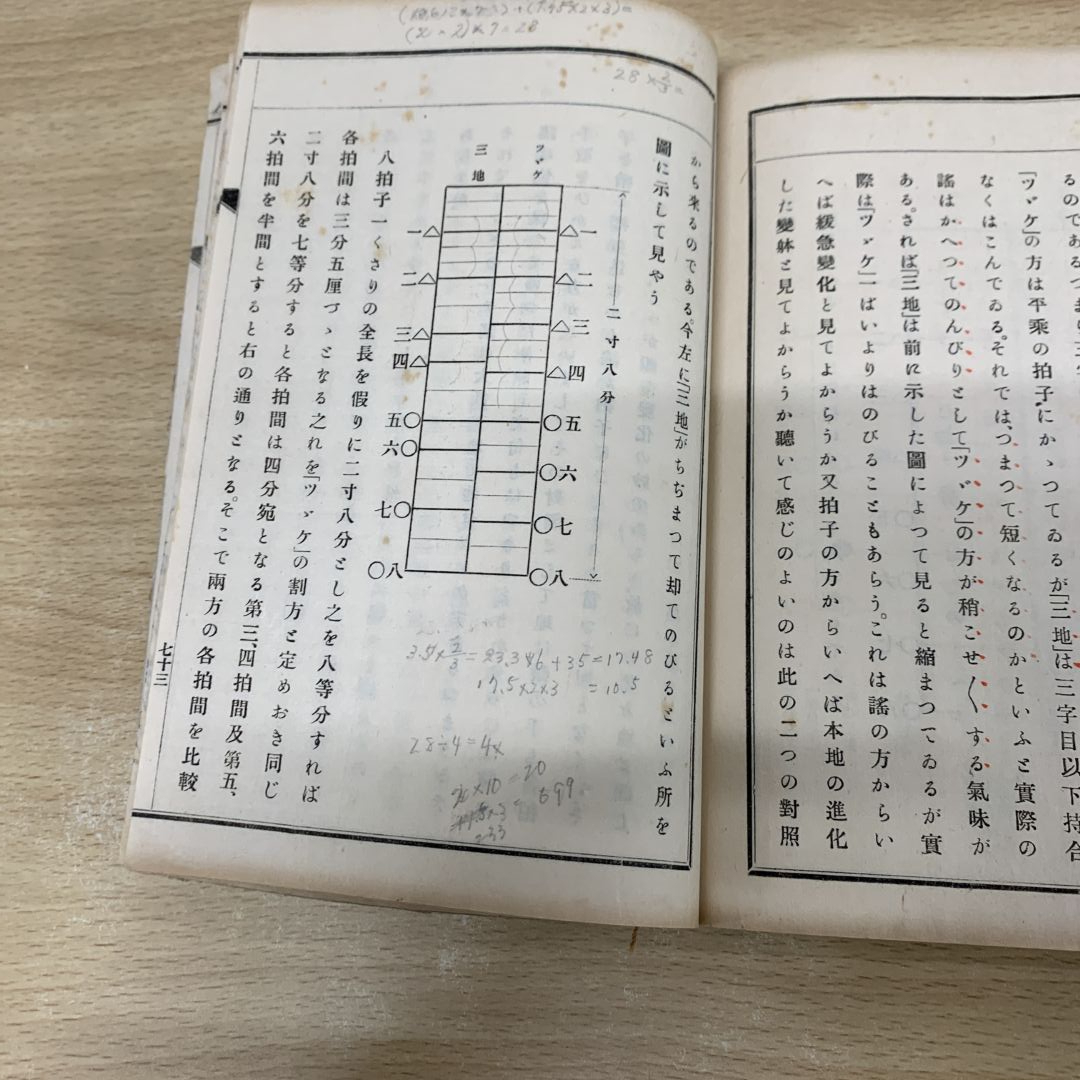 るのである
「ツヾケ」の方は平乘の拍子にかゝつてゐるが「三地」は三字目以下持合
なくはこんでゐる。それでは、つまつて短くなるのかといふと實際の
謠はかへつてのんびりとして「ツヾケ」の方が稍こせ〱する氣味が
ある。されば「三地」は前に示した圖によつて見ると縮まつてゐるが實
際は「ツヾケ」一ぱいよりはのびることもあらう。これは謠の方からい
へば緩急變化と見てよからうか又拍子の方からいへば本地の進化
した變躰と見てよからうか聽いて感じのよいのは此の二つの對照
から來るのである。今左に「三地」がちぢまつて却てのびるといふ所を
圖に示して見やう
ツヾケ
三地
二寸八分
一△
△一
二△
△二
三△
△三
四△
△四
五〇
〇五
六〇
〇六
七〇
〇七
〇八
〇八
八拍子一くさりの全長を假りに二寸八分とし之を八等分すれば
各拍間は三分五厘づゝとなる之れを「ツヾケ」の割方と定めおき同じ
二寸八分を七等分すると各拍間は四分宛となる第三、四拍間及第五、
六拍間を半間とすると右の通りとなる。そこで兩方の各拍間を比較
七十三
28×2/3=
17.5×2×3 =10.5
28÷4=4x
×10=20
699